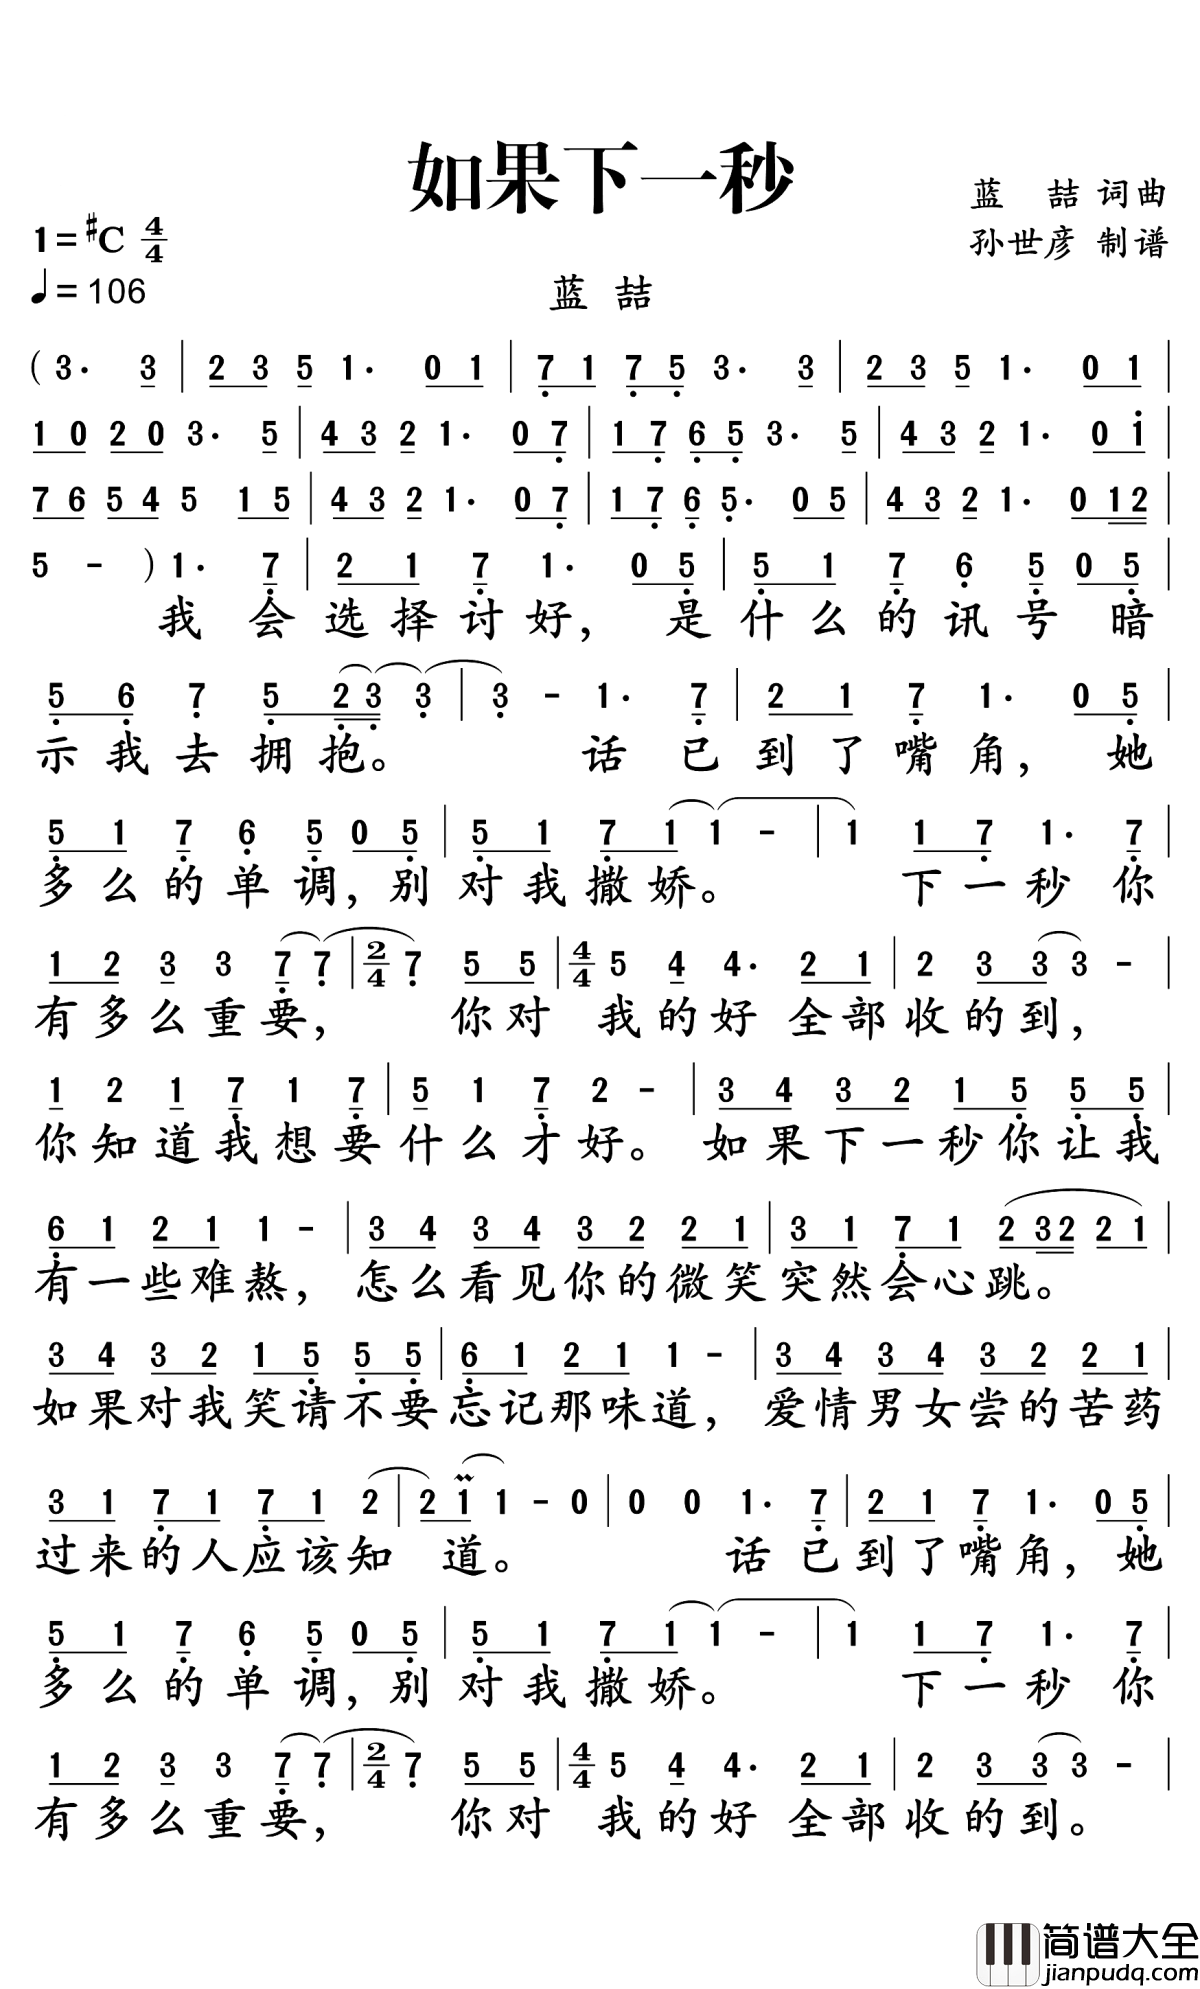 如果下一秒
蓝 喆 词曲
1=♯C 4/4
孙世彦 制谱
♩=106
蓝 喆
( 3· 3 | 2 3 5 1· 0 1 | 7 1 7 5 3· 3 | 2 3 5 1· 0 1 |
1 0 2 0 3· 5 | 4 3 2 1· 0 7 | 1 7 6 5 3· 5 | 4 3 2 1· 0 i |
7 6 5 4 5 1 5 | 4 3 2 1· 0 7 | 1 7 6 5· 0 5 | 4 3 2 1· 0 1 2 |
5 - ) 1· 7 | 2 1 7 1· 0 5 | 5 1 7 6 5 0 5 |
我会选择讨好, 是什么的讯号 暗
5 6 7 5 2 3 3 | 3 - 1· 7 | 2 1 7 1· 0 5 |
示我去拥抱。 话已到了嘴角, 她
5 1 7 6 5 0 5 | 5 1 7 1 1 - | 1 1 7 1· 7 |
多么的单调, 别对我撒娇。 下一秒 你
1 2 3 3 7 7 | 2/4 7 5 5 | 4/4 5 4 4· 2 1 | 2 3 3 3 - |
有多么重要, 你对 我的好 全部收的到,
1 2 1 7 1 7 | 5 1 7 2 - | 3 4 3 2 1 5 5 5 |
你知道我想要什么才好。 如果下一秒你让我
6 1 2 1 1 - | 3 4 3 4 3 2 2 1 | 3 1 7 1 2 3 2 2 1 |
有一些难熬, 怎么看见你的微笑突然会心跳。
3 4 3 2 1 5 5 5 | 6 1 2 1 1 - | 3 4 3 4 3 2 2 1 |
如果对我笑请不要忘记那味道, 爱情男女尝的苦药
3 1 7 1 7 1 2 | 2 1 1 - 0 | 0 0 1· 7 | 2 1 7 1· 0 5 |
过来的人应该知 道。 话已到了嘴角, 她
5 1 7 6 5 0 5 | 5 1 7 1 1 - | 1 1 7 1· 7 |
多么的单调, 别对我撒娇。 下一秒 你
1 2 3 3 7 7 | 2/4 7 5 5 | 4/4 5 4 4· 2 1 | 2 3 3 3 - |
有多么重要, 你对 我的好 全部收的到。
简谱大全
jianpudq.com